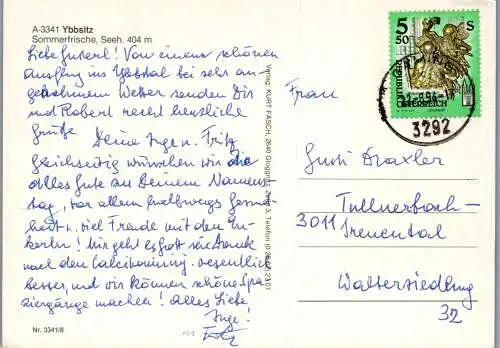 A-3341 Ybbsitz
Sommerfrische, Seeh. 404 m
Liebe Gusterl! Von einem schönen
Ausflug ins Ybbstal bei sehr an-
genehmem Wetter senden Dir
und Robert recht herzliche
Grüße
Deine Inge u. Fritz
Gleichzeitig wünschen wir Dir
alles Gute zu Deinem Namens-
tag, vor allem Gesund-
heit u. viel Freude mit den En-
kerln! Mir geht es Gott sei Dank
nach den Calcitonininj. wesentlich
besser, und wir können schöne Spa-
ziergänge machen! Alles Liebe
Inge!
Fritz
Nr. 3341/8
Verlag: KURT FASCH, 2640 Gloggnitz, Telefon
5 50 S
ÖSTERREICH
3292
Frau
Gusti Draxler
Tullnerbach-
3011 Irenental
Waltersiedlung
32